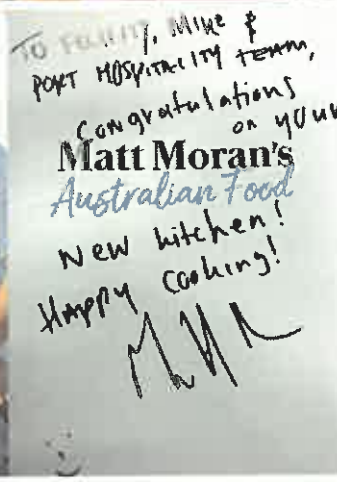 TO FELICITY, MIKE &
PORT HOSPITALITY TEAM,
Congratulations
on your
Matt Moran's
Australian Food
New kitchen!
Happy cooking!